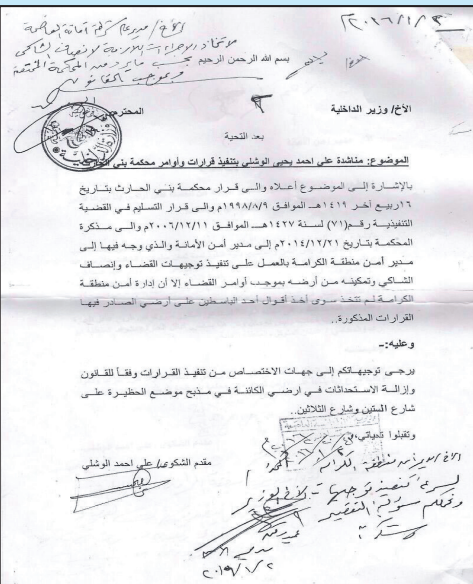 الأخ/ مدير عام شرطة أمانة العاصمة
لاتخاذ الإجراءات اللازمة لإنصاف الشاكي
بحسب ما يرد من المحكمة المختصة
وبموجب القانون
٢٠١٦/١/٢
بسم الله الرحمن الرحيم
الأخ/ وزير الداخلية المحترم
بعد التحية
الموضوع: مناشدة على احمد يحيى الوشلي بتنفيذ قرارات وأوامر محكمة بني الحارث
بالإشارة إلى الموضوع أعلاه والى قرار محكمة بني الحارث بتاريخ
١٦ربيع آخر ١٤١٩هـ الموافق ١٩٩٨/٨/٩م والى قرار التسليم في القضية
التنفيذية رقم(٧١) لسنة ١٤٢٧هـ الموافق ٢٠٠٦/١٢/١١م والى مذكرة
المحكمة بتاريخ ٢٠١٤/١٢/٢١م إلى مدير أمن الأمانة والذي وجه فيها إلى
مدير أمن منطقة الكرامة بالعمل على تنفيذ توجيهات القضاء وإنصاف
الشاكي وتمكينه من أرضه بموجب أوامر القضاء إلا أن إدارة أمن منطقة
الكرامة لم تتخذ سوى أخذ أقوال أحد الباسطين على أرضي الصادر فيها
القرارات المذكورة..
وعليه:-
يرجى توجيهاتكم إلى جهات الاختصاص من تنفيذ القرارات وفقاً للقانون
وإزالة الاستحداثات في ارضي الكائنة في مذبح موضع الحظيرة على
شارع الستين وشارع الثلاثين..
وتقبلوا تحياتي،،
مقدم الشكوى/ علي احمد الوشلي
الأخ/ مدير أمن منطقة الكرامة
لسرعة تنفيذ توجيهات الأخ الوزير
ونحملكم مسؤولية التقصير